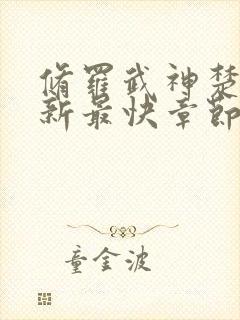 脩羅武神楚
新最快章節
童金波